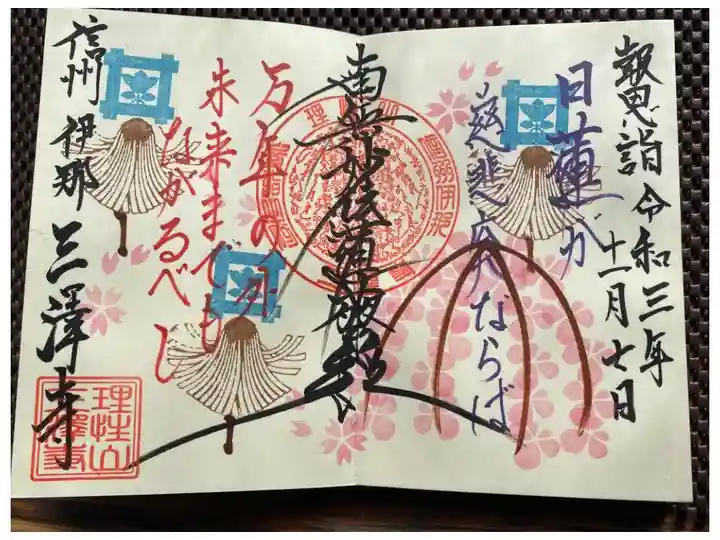 報恩詣 令和三年
十一月七日
日蓮が
慈悲広大ならば
南無妙法蓮華経
万年の外
未来までも
ながるべし
信州 伊那 三澤寺
理性山
三澤寺